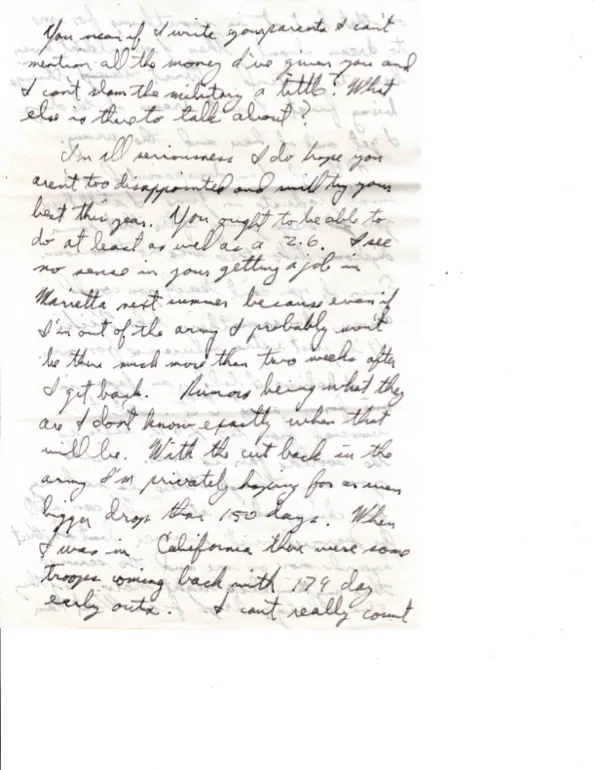 You mean if I write your parents I can't
mention all the money I've given you and
I can't slam the military a little? What
else is there to talk about?
In all seriousness I do hope you
aren't too disappointed and will try your
best this year. You ought to be able to
do at least as well as a 2.6. I see
no sense in your getting a job in
Marietta next summer because even if
I'm out of the army I probably won't
be there much more than two weeks after
I get back. Rumors being what they
are I don't know exactly when that
will be. With the cut back in the
army I'm privately hoping for an even
bigger drop than 150 days. When
I was in California there were some
troops coming back with 179 day
early outs. I can't really count